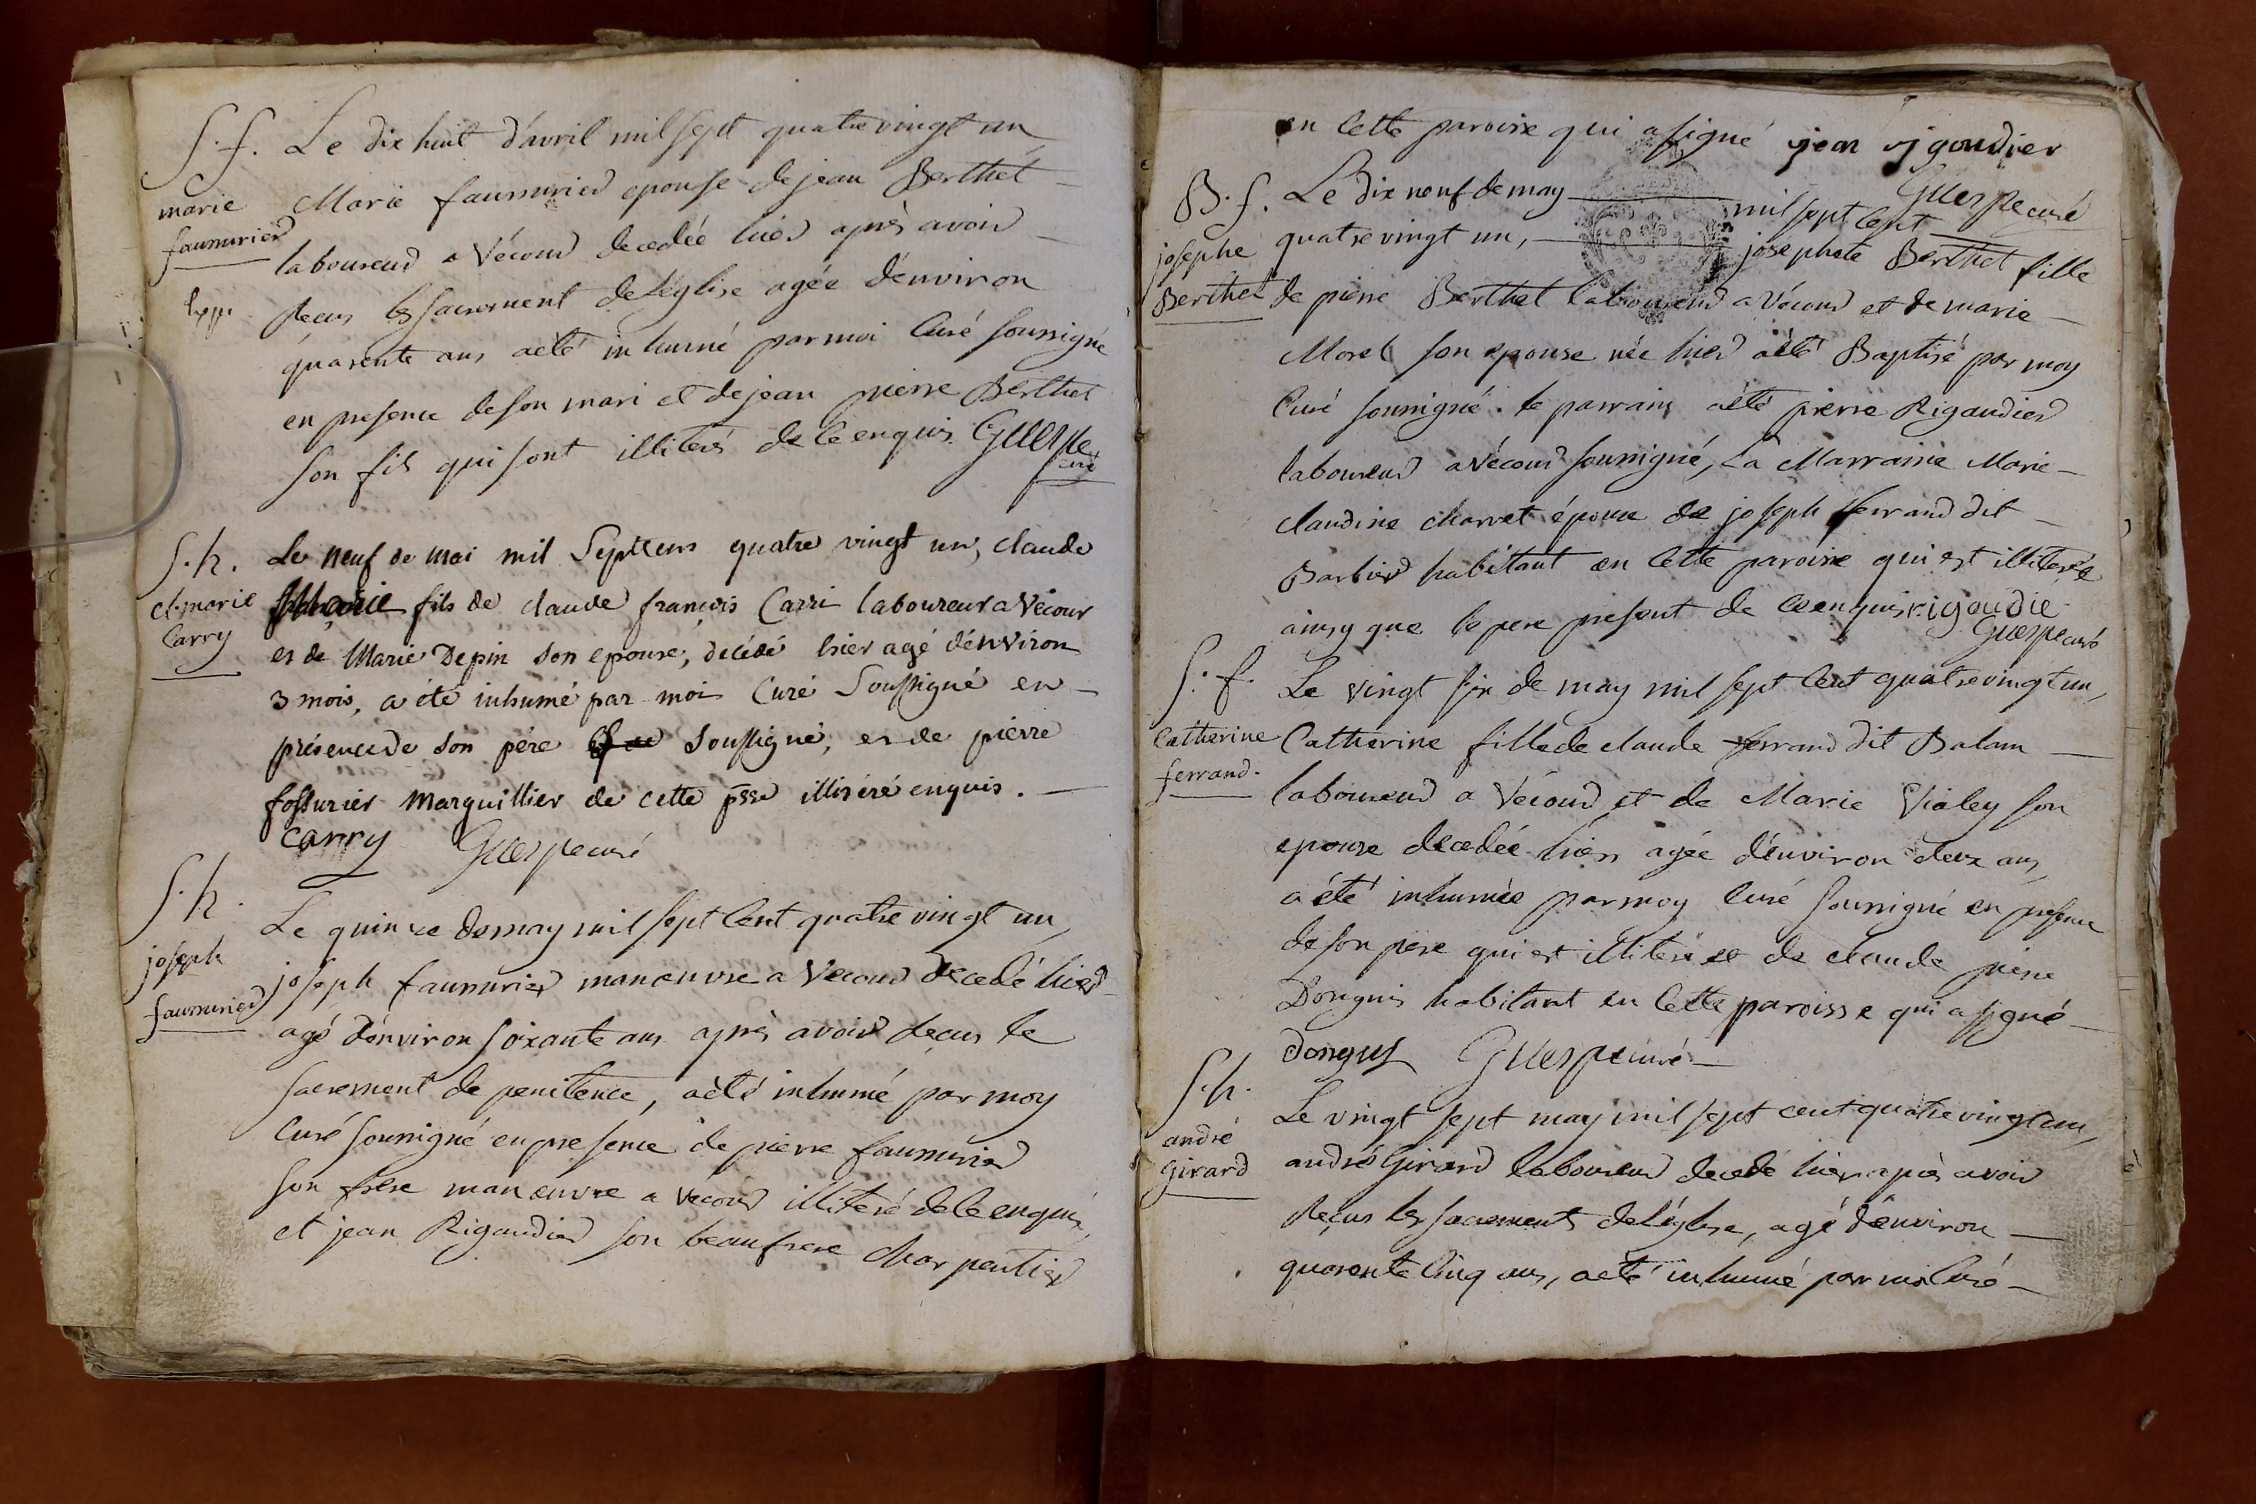 S. f.
marie
faussurier
Le dix huit d'avril mil sept quatre vingt un
Marie faussurier epouse de jean Berthet
laboureur a Vécour decedée hier après avoir
recus les sacrement de l'église agée d'environ
quarente ans aété inhumé par moi Curé soussigné
en presence de son mari et de jean pierre Berthet
son fils qui sont illiterés de ce enquis. Guerpe
curé
S. h.
cl. marie
Carry
Le neuf de mai mil Septcens quatre vingt un, claude
Marie fils de claude françois Carri laboureur a Vécour
et de Marie Depin son epouse, décédé hier agé d'environ
3 mois, a été inhumé par moi Curé Soussigné en
présence de son père soussigné, et de pierre
fossurier Marguillier de cette psse illitéré enquis.
Carry Guerpe curé
S. h.
joseph
faussurier
Le quinze de may mil sept cent quatre vingt un,
joseph faussurier manœuvre a Vecour decedé hier
agé d'environ soixante ans après avoir reçus le
sacrement de penitence, aété inhumé par moy
Curé soussigné en presence de pierre faussurier
son frere manœuvre a vecour illiteré de ce enquis,
et jean Rigaudier son beaufrere charpentier
en cette paroisse qui a signé jean rigaudier
Guerpe curé
B. f.
josephe
Berthet
Le dix neuf de may mil sept cent
quatre vingt un, josephete Berthet fille
de pierre Berthet laboureur a Vécour et de marie
Morel son epouse née hier aété Baptisé par moy
Curé soussigné. le parrain aété pierre Rigaudier
laboureur a Vécour soussigné, La Marraine Marie
claudine charvet épouse de joseph ferrand dit
Barbier habitant en cette paroisse qui est illiterée
ainsy que le pere present de ce enquis rigaudie
Guerpe curé
S. f.
Catherine
ferrand.
Le vingt six de may mil sept cent quatre vingt un,
Catherine fille de claude ferrand dit Balam
laboureur a Vécour et de Marie Vialey son
epouse decedée hier agée d'environ deux ans,
a été inhumée par moy Curé soussigné en presence
de son pere qui est illiteré et de claude pierre
Donguis habitant en cette paroisse qui a signé
donguy Guerpe curé
S. h.
andré
Girard
Le vingt sept may mil sept cent quatre vingt un,
andré Girard laboureur decedé hier après avoir
reçus les sacrements de l'église, agé d'environ
quarente cinq ans, aété inhumé par moi Curé